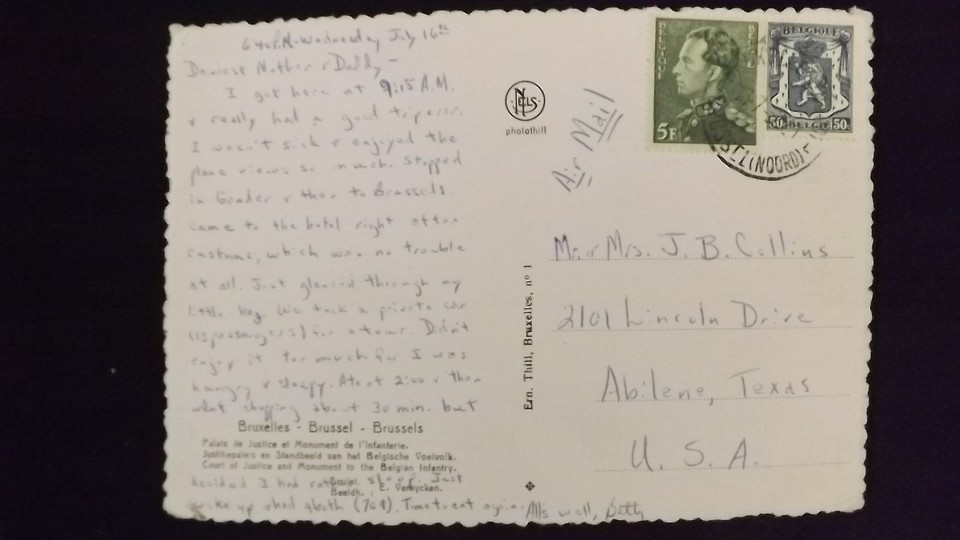 6:40 P.M-Wednesday July 16th
Dearest Mother & Daddy -
I got here at 9:15 A.M.
& really had a good trip over.
I wasn't sick & enjoyed the
plane views so much. Stopped
in Gander & then to Brussels.
Came to the hotel right after
customs, which was no trouble
at all. Just glanced through my
little bag. We took a private car
(15 passengers) for a tour. Didn't
enjoy it too much for I was
hungry & sleepy. Ate at 2:00 & then
went shopping about 30 min. but
Bruxelles - Brussel - Brussels
Palais de Justice et Monument de l'Infanterie.
Justitiepaleis en Standbeeld van het Belgische Voetvolk.
Court of Justice and Monument to the Belgian Infantry.
Sculpt. : E. Vereycken.
Beeldh.
decided I had sleep. Just
woke up & had a bath (70¢). Time to eat again. All's well, Betty
NELS
photothill
Ern. Thill, Bruxelles, nº 1
Air Mail
BELGIQUE
BELGIE
5F
BELGIQUE
50 BELGIE 50
(NOORD)
Mr. & Mrs. J. B. Collins
2101 Lincoln Drive
Abilene, Texas
U. S. A.